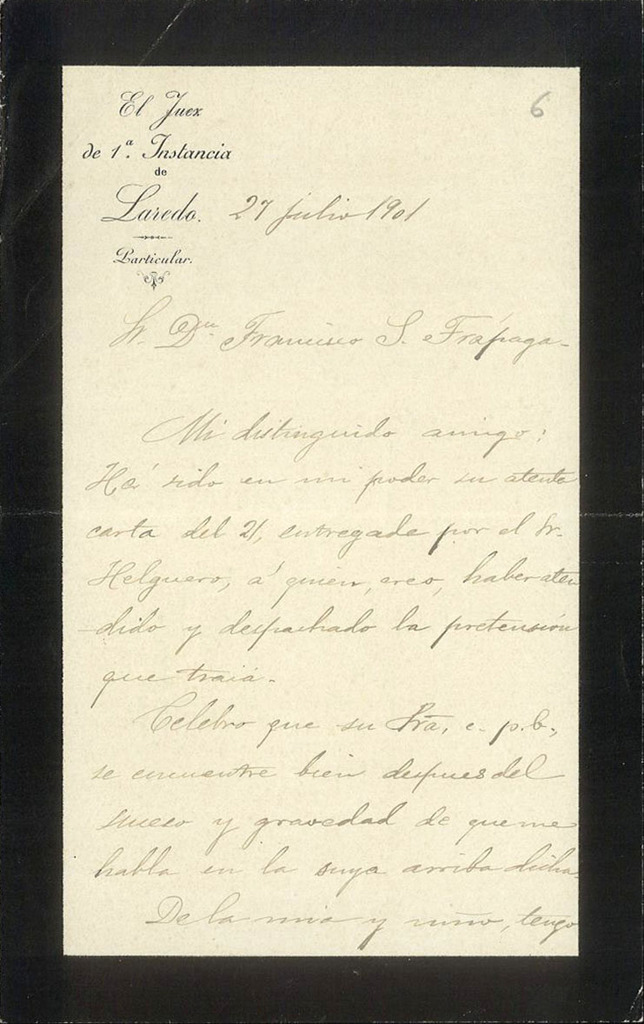 El Juez
6
de 1ª. Instancia
de
Laredo. 27 julio 1901
Particular.
Sr. Dn. Francisco S. Trápaga.
Mi distinguido amigo:
Há sido en mi poder su atenta
carta del 21, entregada por el Sr.
Helguero, á quien, creo, haber aten
dido y despachado la pretensión
que traia.
Celebro que su Sra, c. p. b.,
se encuentre bien despues del
suceso y gravedad de que me
habla en la suya arriba dicha.
De la mia y niño, tengo